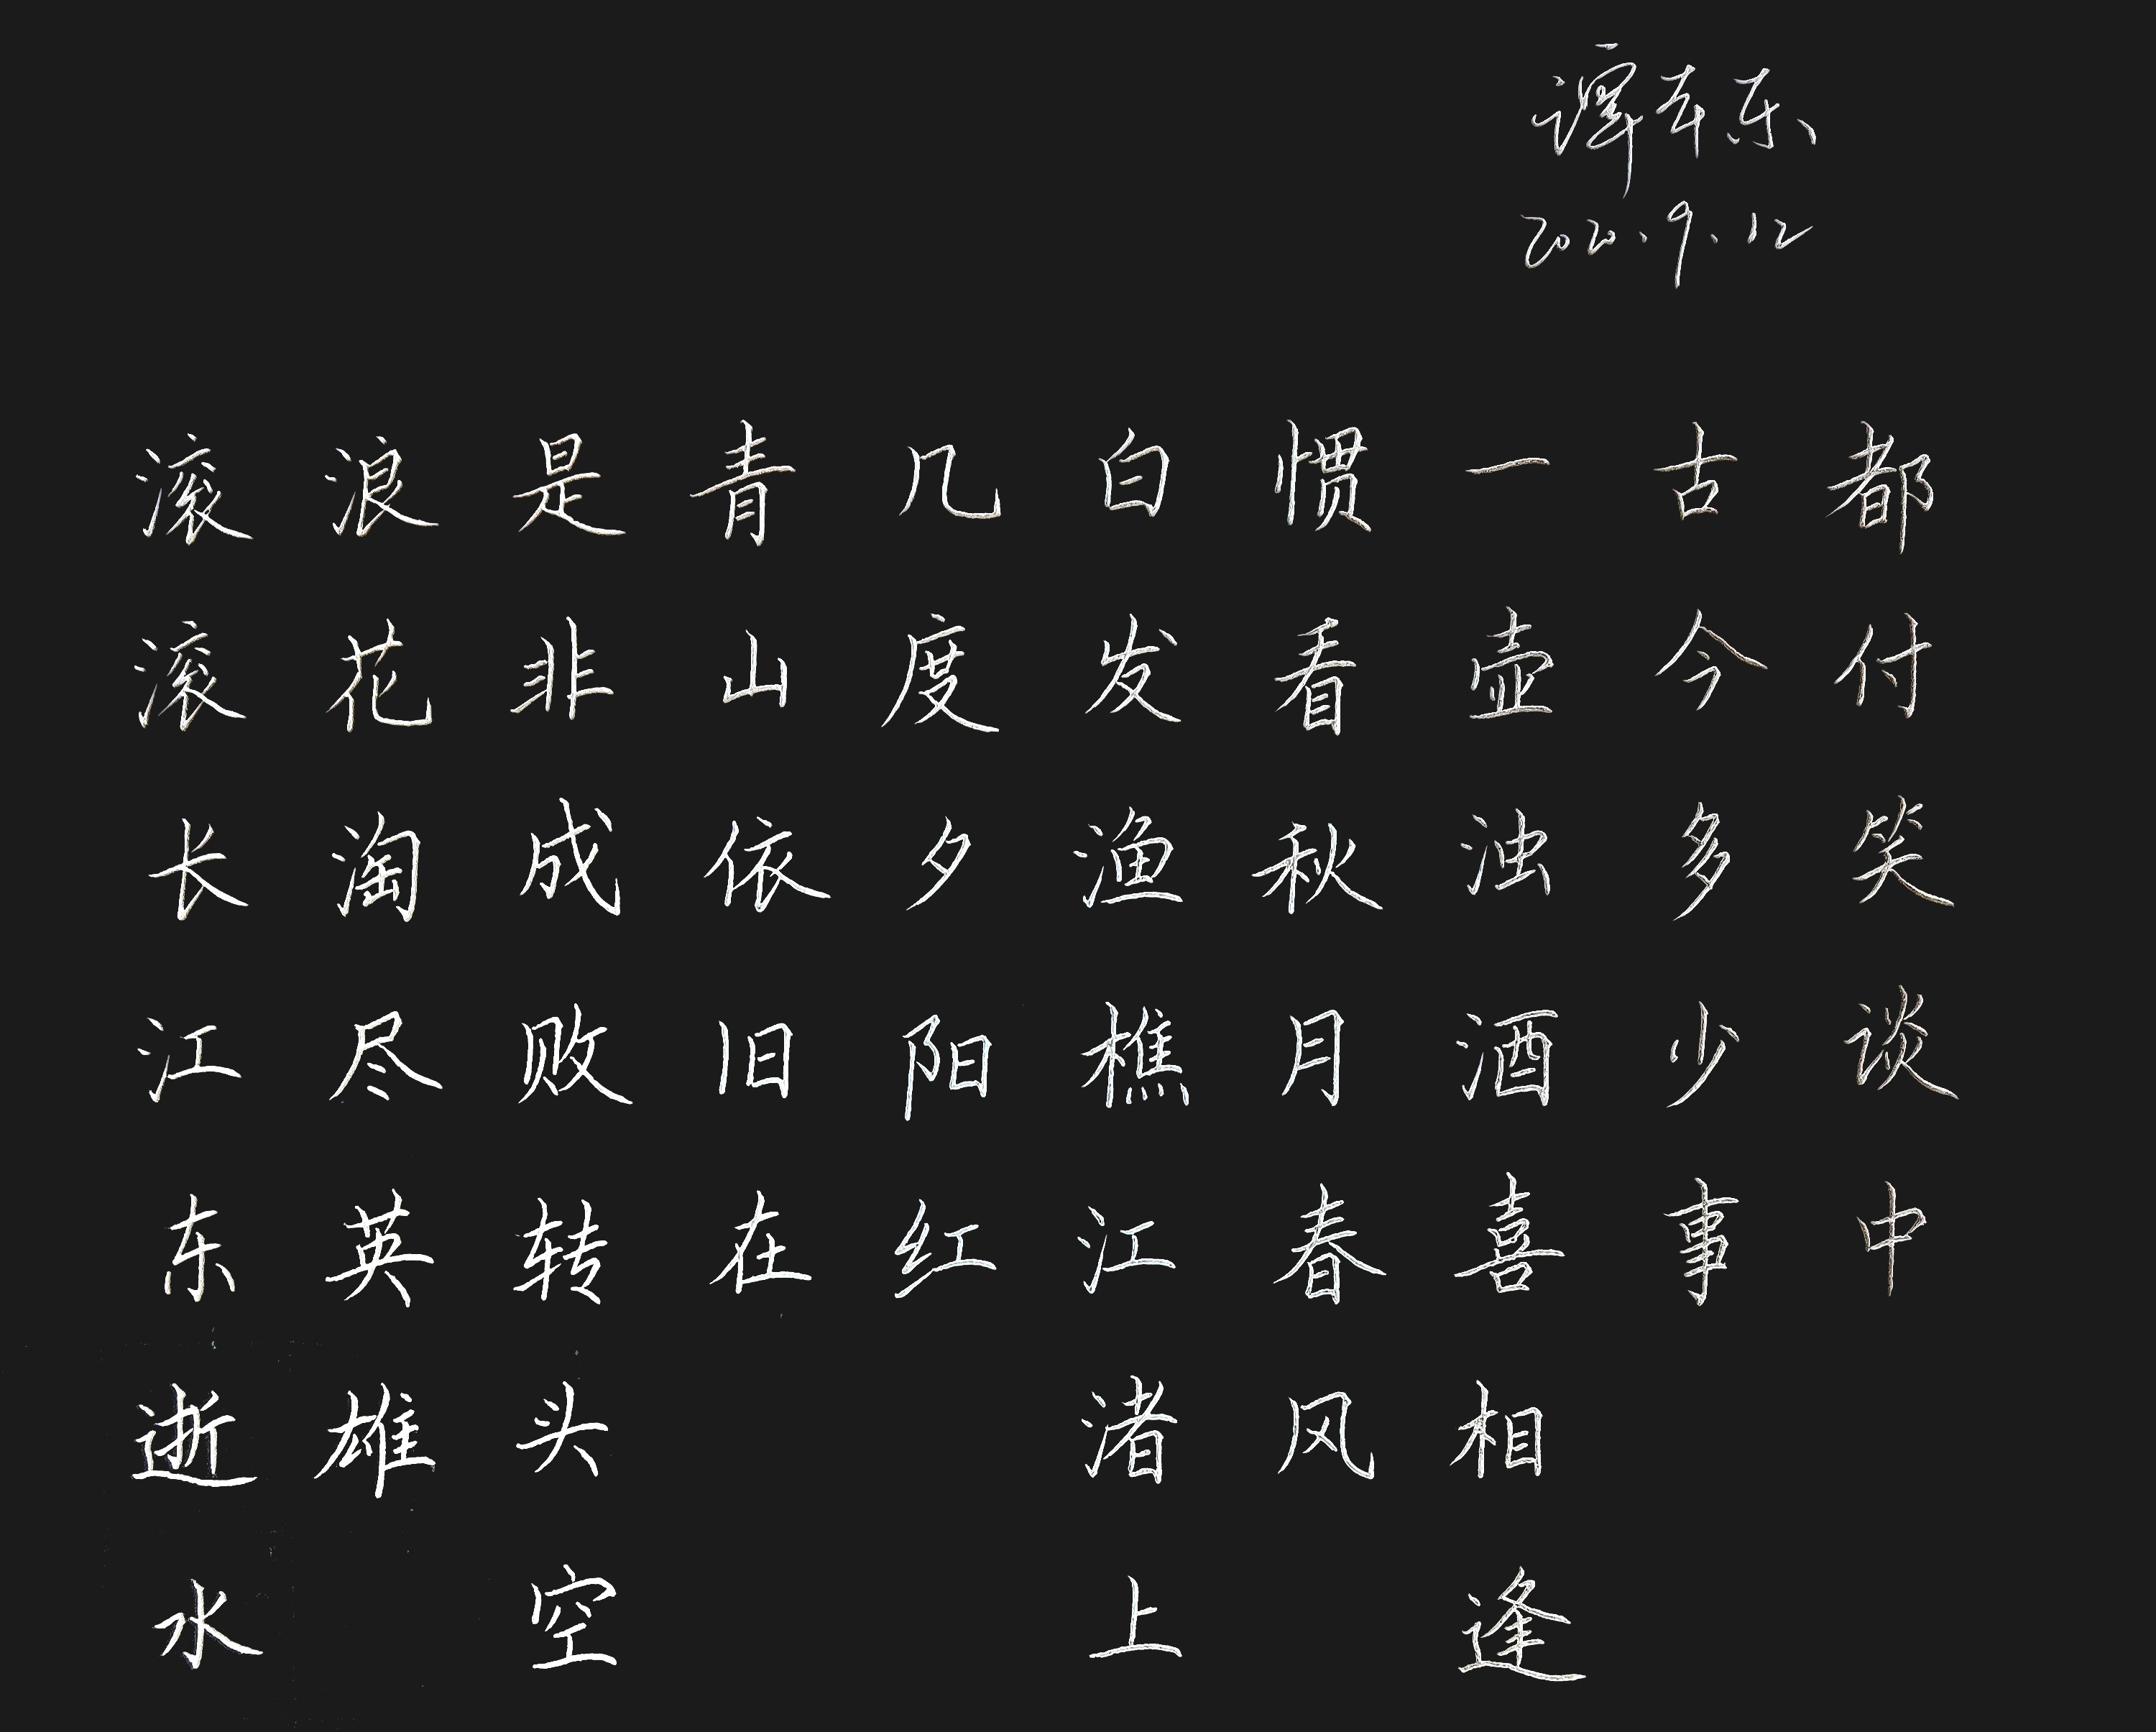 2020.9.12
滚滚长江东逝水
浪花淘尽英雄
是非成败转头空
青山依旧在
几度夕阳红
白发渔樵江渚上
惯看秋月春风
一壶浊酒喜相逢
古今多少事
都付笑谈中